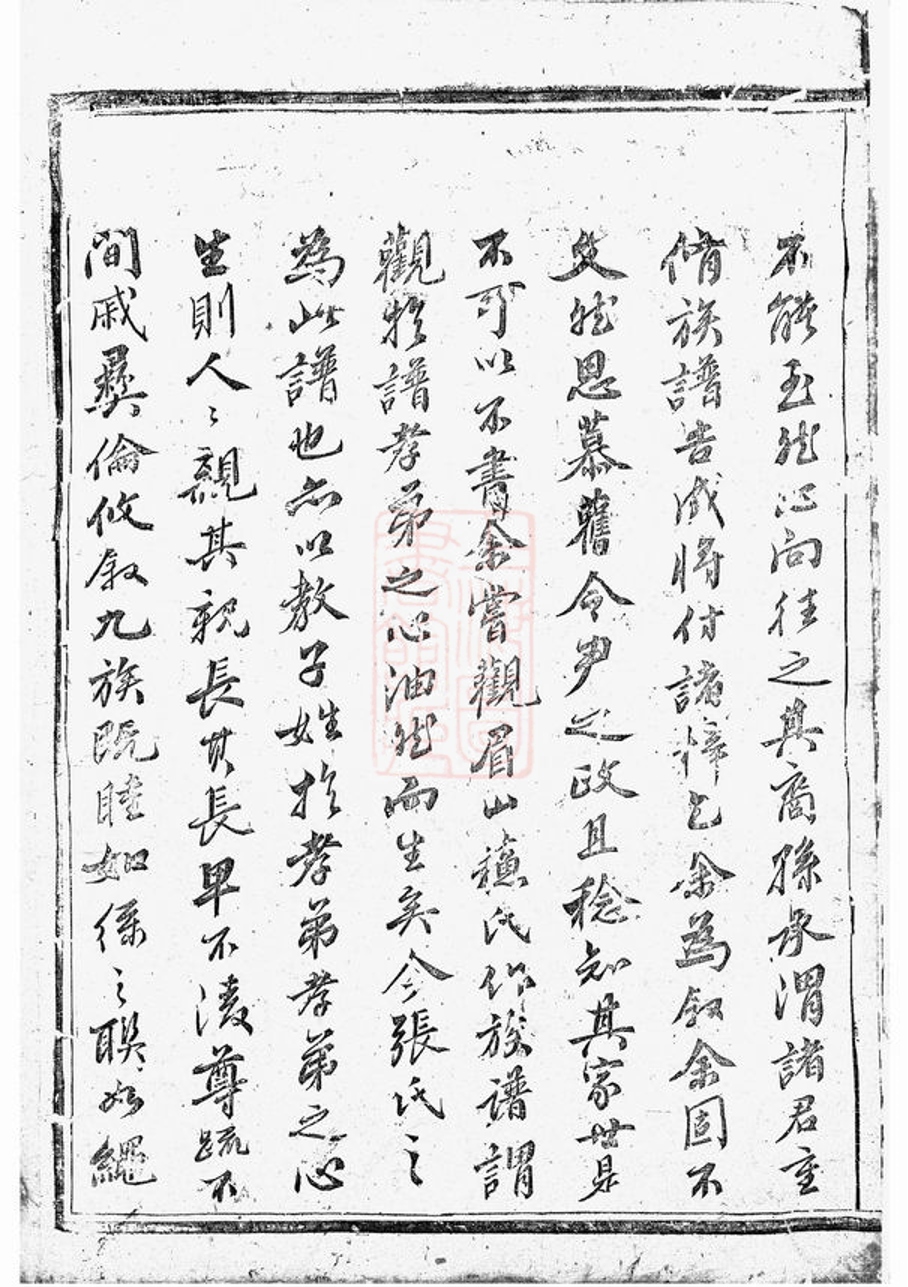 不能至然心向往之其裔孫承渭諸君重
脩族譜告成將付諸梓乞余為叙余固不
文然思慕舊令尹之政且稔知其家世是
不可以不書余嘗觀眉山蘓氏作族譜謂
觀於譜孝弟之心油然而生矣今張氏之
為此譜也亦以教子姓於孝弟孝弟之心
生則人々親其親長其長卑不淩尊疏不
間戚彛倫攸叙九族既睦如絲之聯如繩